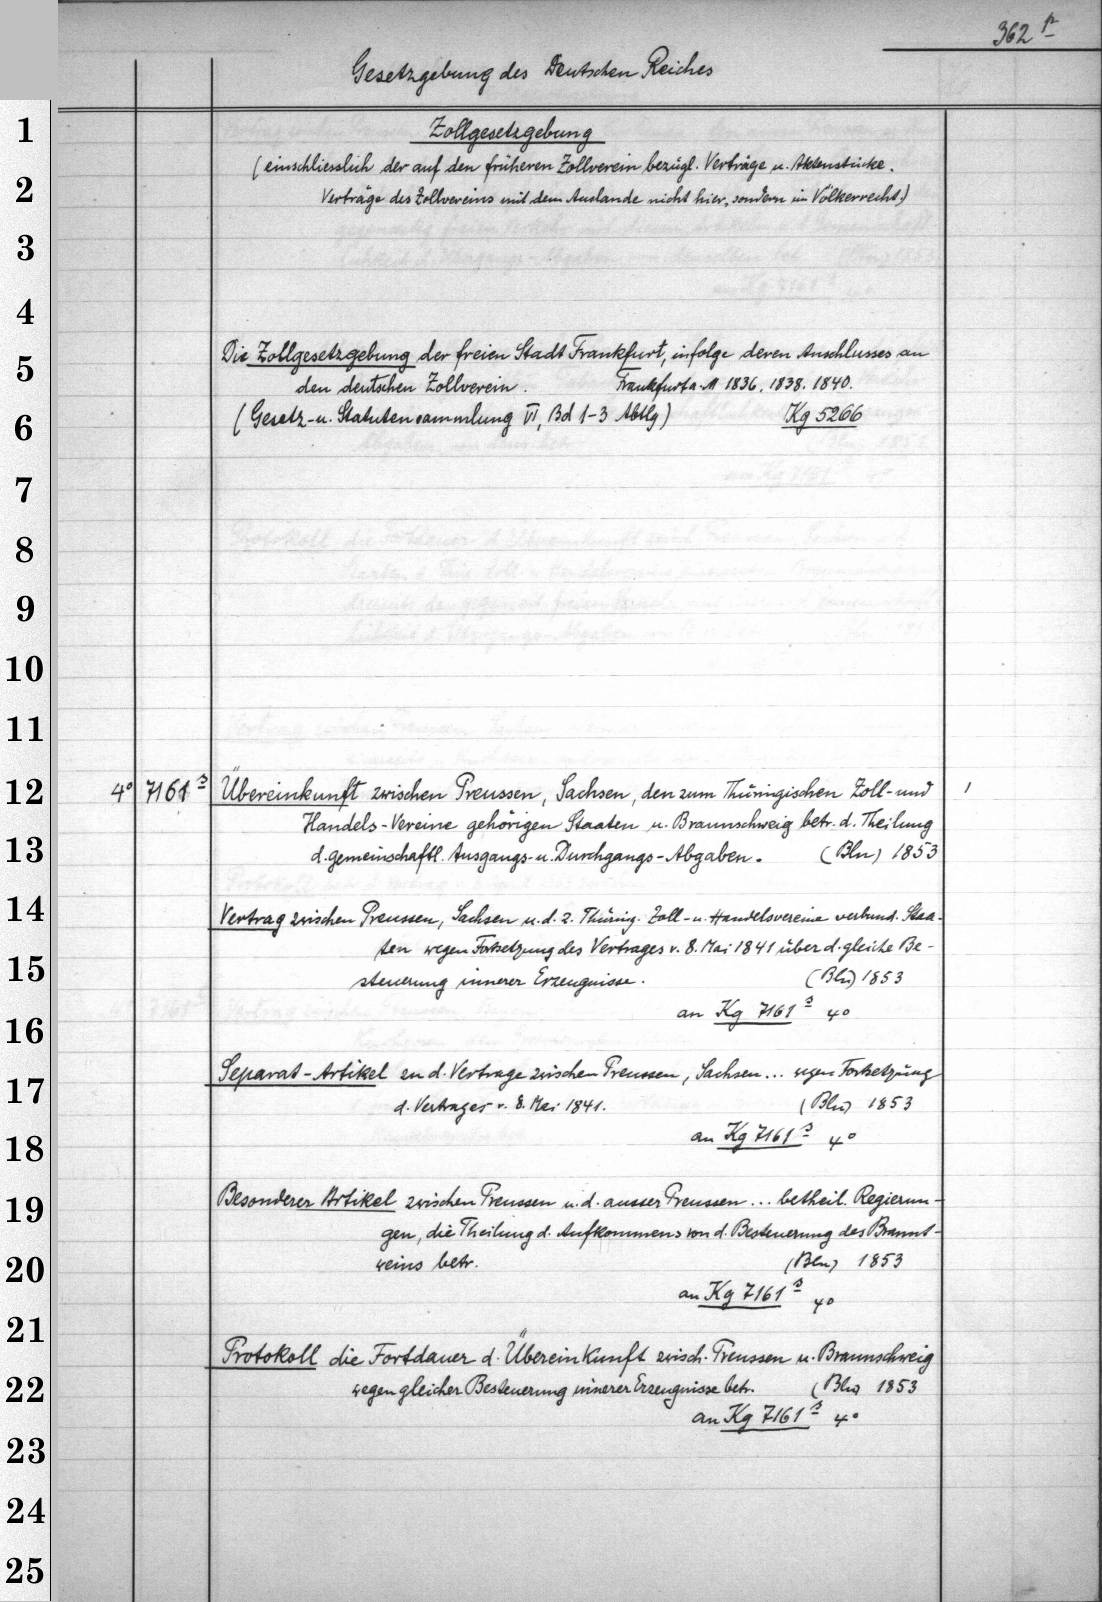 362 p
Gesetzgebung des Deutschen Reiches
1
Zollgesetzgebung
(einschliesslich der auf den früheren Zollverein bezügl. Verträge u. Aktenstücke.
2
Verträge des Zollvereins mit dem Auslande nicht hier, sondern im Völkerrecht.)
3
4
Die Zollgesetzgebung der freien Stadt Frankfurt, infolge deren Anschlusses an
5
den deutschen Zollverein. Frankfurt a. M 1836. 1838. 1840.
6
(Gesetz- u. Statutensammlung VI, Bd 1-3 Abtlg) Kg 5266
7
8
9
10
11
12 4° 7161 s Übereinkunft zwischen Preussen, Sachsen, den zum Thüringischen Zoll- und 1
Handels-Vereine gehörigen Staaten u. Braunschweig betr. d. Theilung
13 d. gemeinschaftl. Ausgangs- u. Durchgangs-Abgaben. (Bln) 1853
14 Vertrag zwischen Preussen, Sachsen u. d. z. Thüring. Zoll- u. Handelsvereine verbund. Staa-
ten wegen Fortsetzung des Vertrages v. 8. Mai 1841 über d. gleiche Be-
15 steuerung innerer Erzeugnisse. (Bln) 1853
an Kg 7161 s 4°
16
Separat-Artikel zu d. Vertrage zwischen Preussen, Sachsen... wegen Fortsetzung
17
d. Vertrages v. 8. Mai 1841. (Bln) 1853
an Kg 7161 s 4°
18
Besonderer Artikel zwischen Preussen u. d. ausser Preussen... betheil. Regierun-
19
gen, die Theilung d. Aufkommens von d. Besteuerung des Brannt-
20 weins betr. (Bln) 1853
an Kg 7161 s 4°
21
Protokoll die Fortdauer d. Übereinkunft zwisch. Preussen u. Braunschweig
22 wegen gleicher Besteuerung innerer Erzeugnisse betr. (Bln) 1853
an Kg 7161 s 4°
23
24
25